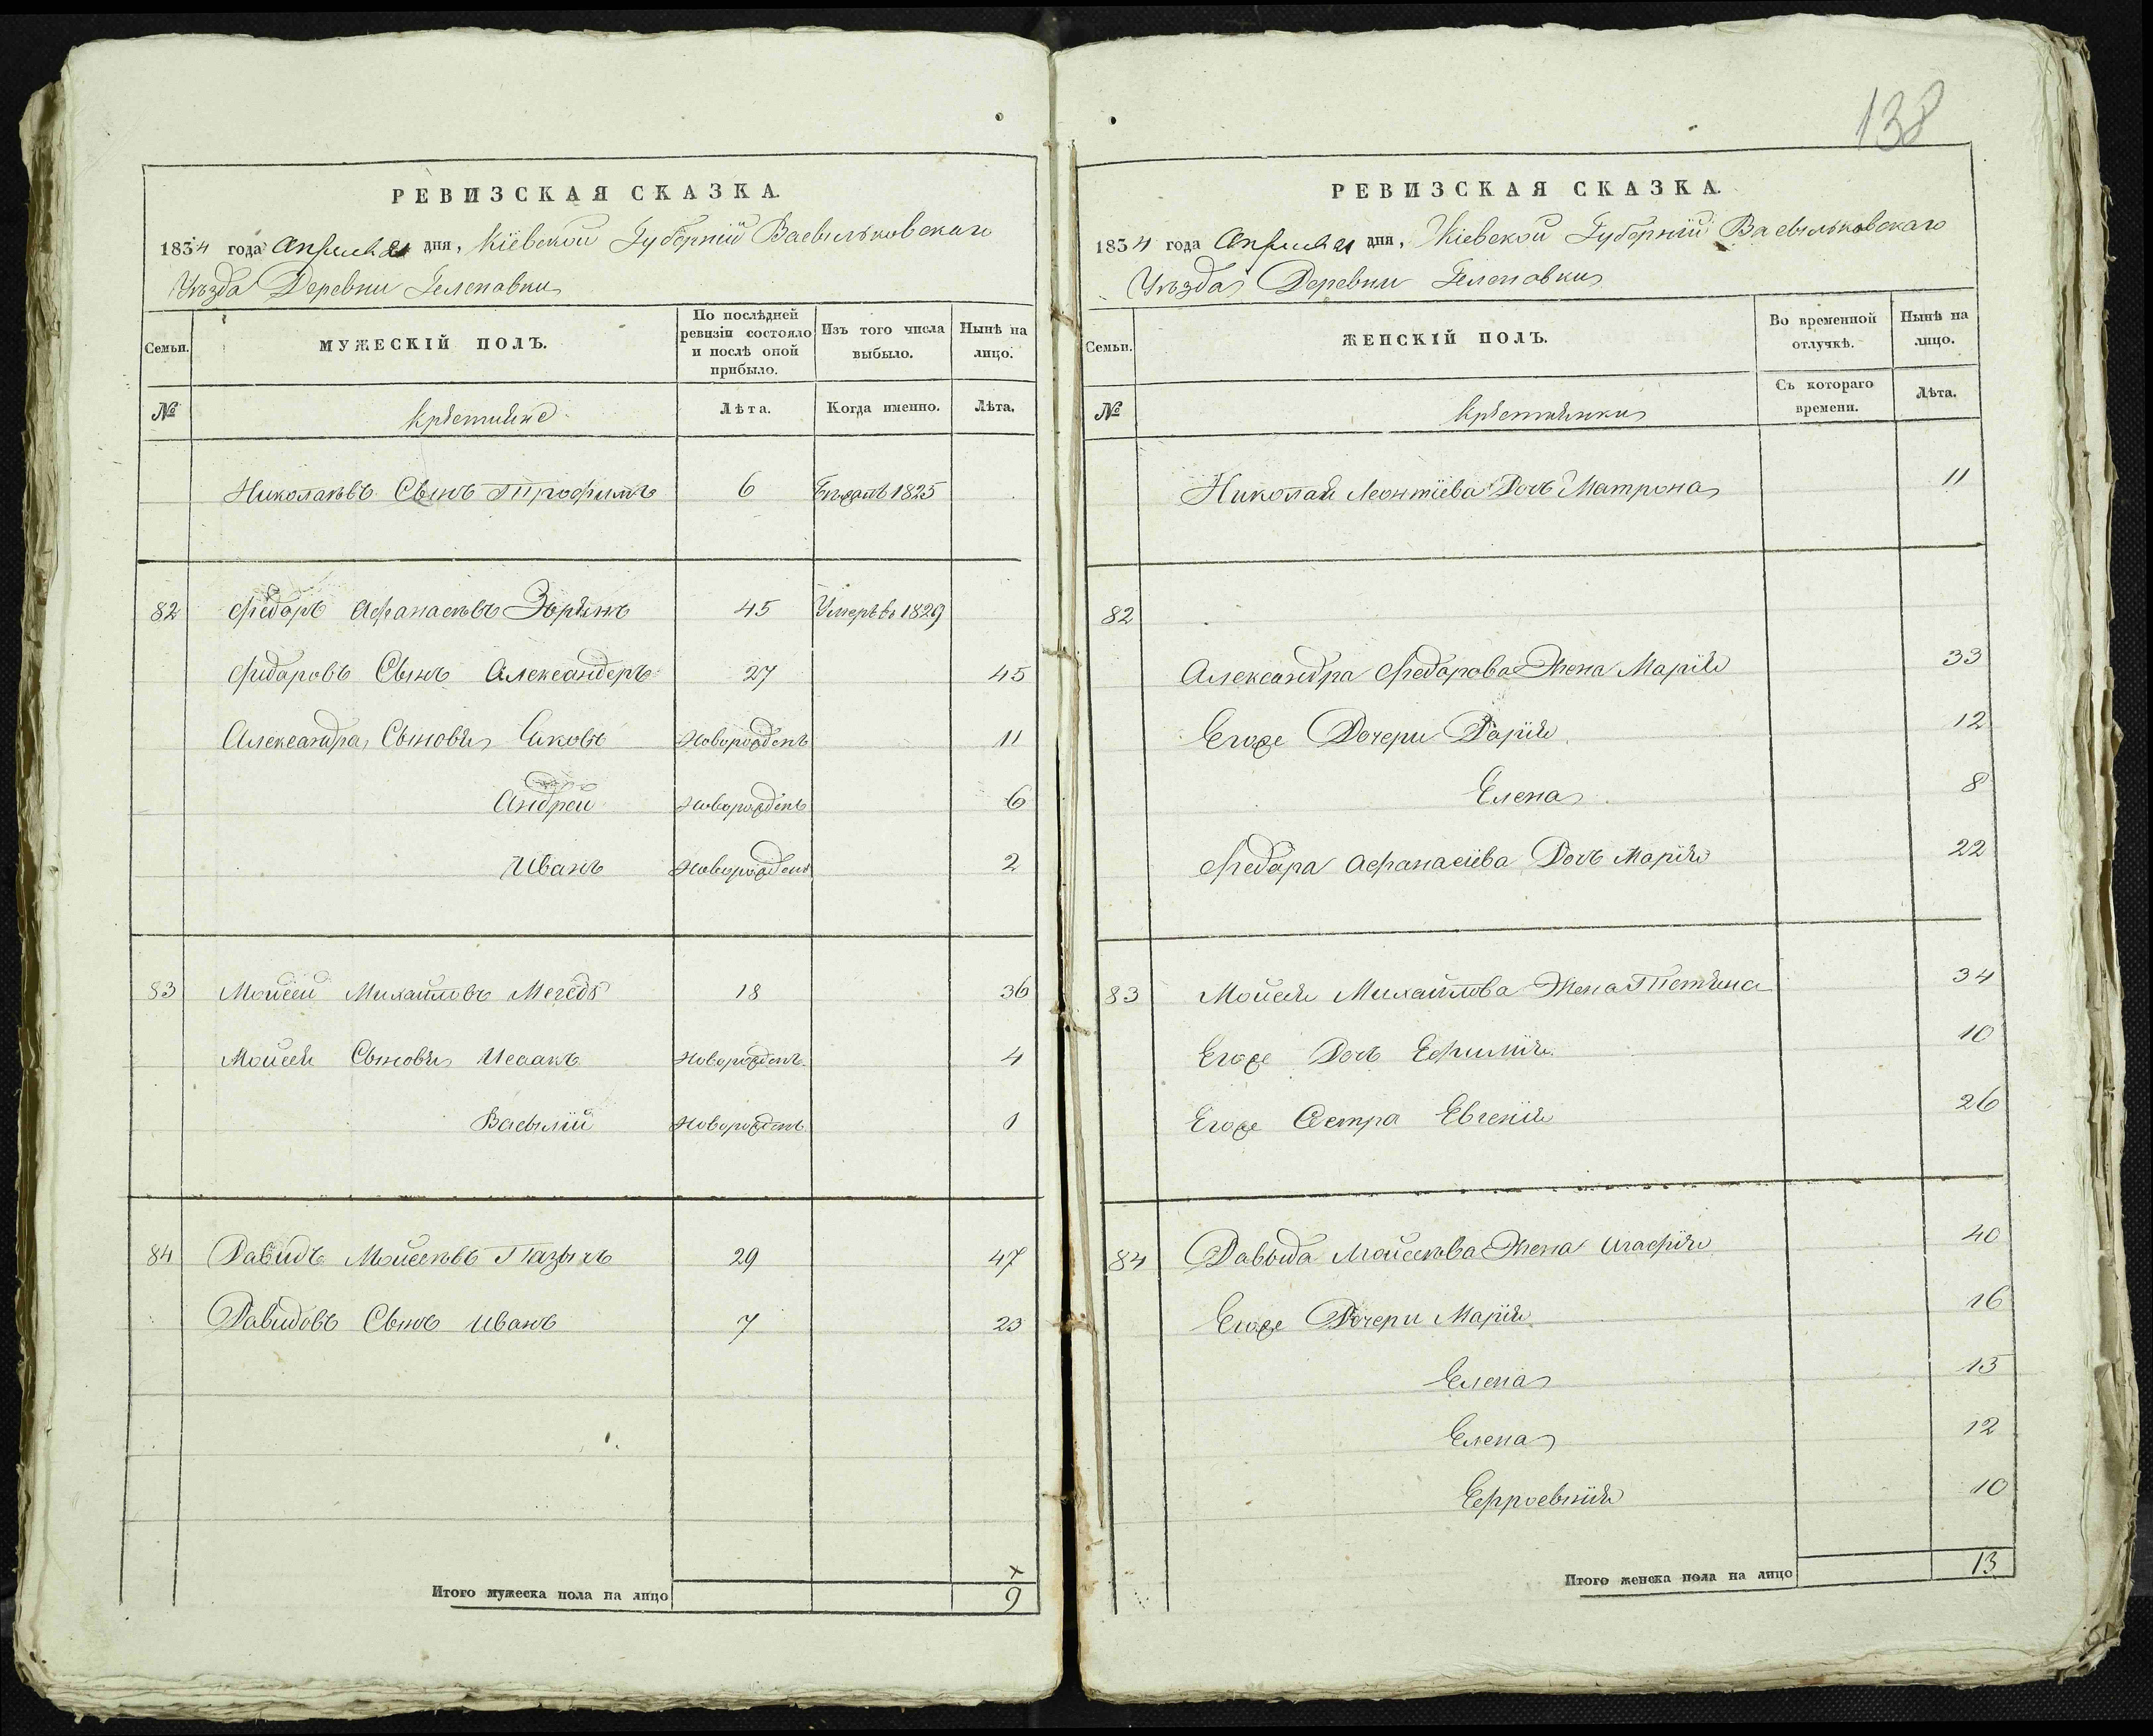 РЕВИЗСКАЯ СКАЗКА.
1834 года Апреля 21 дня, Кіевской Губерніи Васильковскаго
Уѣзда Деревни Гелеповки
Семьи.
МУЖЕСКІЙ ПОЛЪ.
По послѣдней ревизіи состояло и послѣ оной прибыло.
Изъ того числа выбыло.
Нынѣ на лицо.
№
Крестьяне
Лѣта.
Когда именно.
Лѣта.
Николаевъ Сынъ Трофимъ 6 Бѣжалъ 1825
82 Федоръ Афанасьевъ 45 Умеръ въ 1829
Федоровъ Сынъ Александеръ 27 45
Александра Сыновья Яковъ Новорожденъ 11
Андрей Новорожденъ 6
Иванъ Новорожденъ 2
83 Мойсей Михайловъ Мегедь 18 36
Мойсея Сыновья Исаакъ Новорожденъ 4
Василій Новорожденъ 1
84 Давидъ Мойсеевъ 29 47
Давидовъ Сынъ Иванъ 7 23
Итого мужеска пола на лицо 9
138
РЕВИЗСКАЯ СКАЗКА.
1834 года Апреля 21 дня, Кіевской Губерніи Васильковскаго
Уѣзда Деревни Гелеповки
Семьи.
ЖЕНСКІЙ ПОЛЪ.
Во временной отлучкѣ.
Нынѣ на лицо.
№
Крестьянки
Съ котораго времени.
Лѣта.
Николая Леонтіева Дочь Матрона 11
82
Александра Федорова Жена Марія 33
Егоже Дочери Дарія 12
Елена 8
Федора Афанасіева Дочь Марія 22
83 Мойсея Михайлова Жена 34
Егоже Дочь Ефимія 10
Егоже Сестра Евгенія 26
84 Давыда Мойсеева Жена Агафія 40
Егоже Дочери Марія 16
Елена 15
Елена 12
Ефросинія 10
Итого женска пола на лицо 13